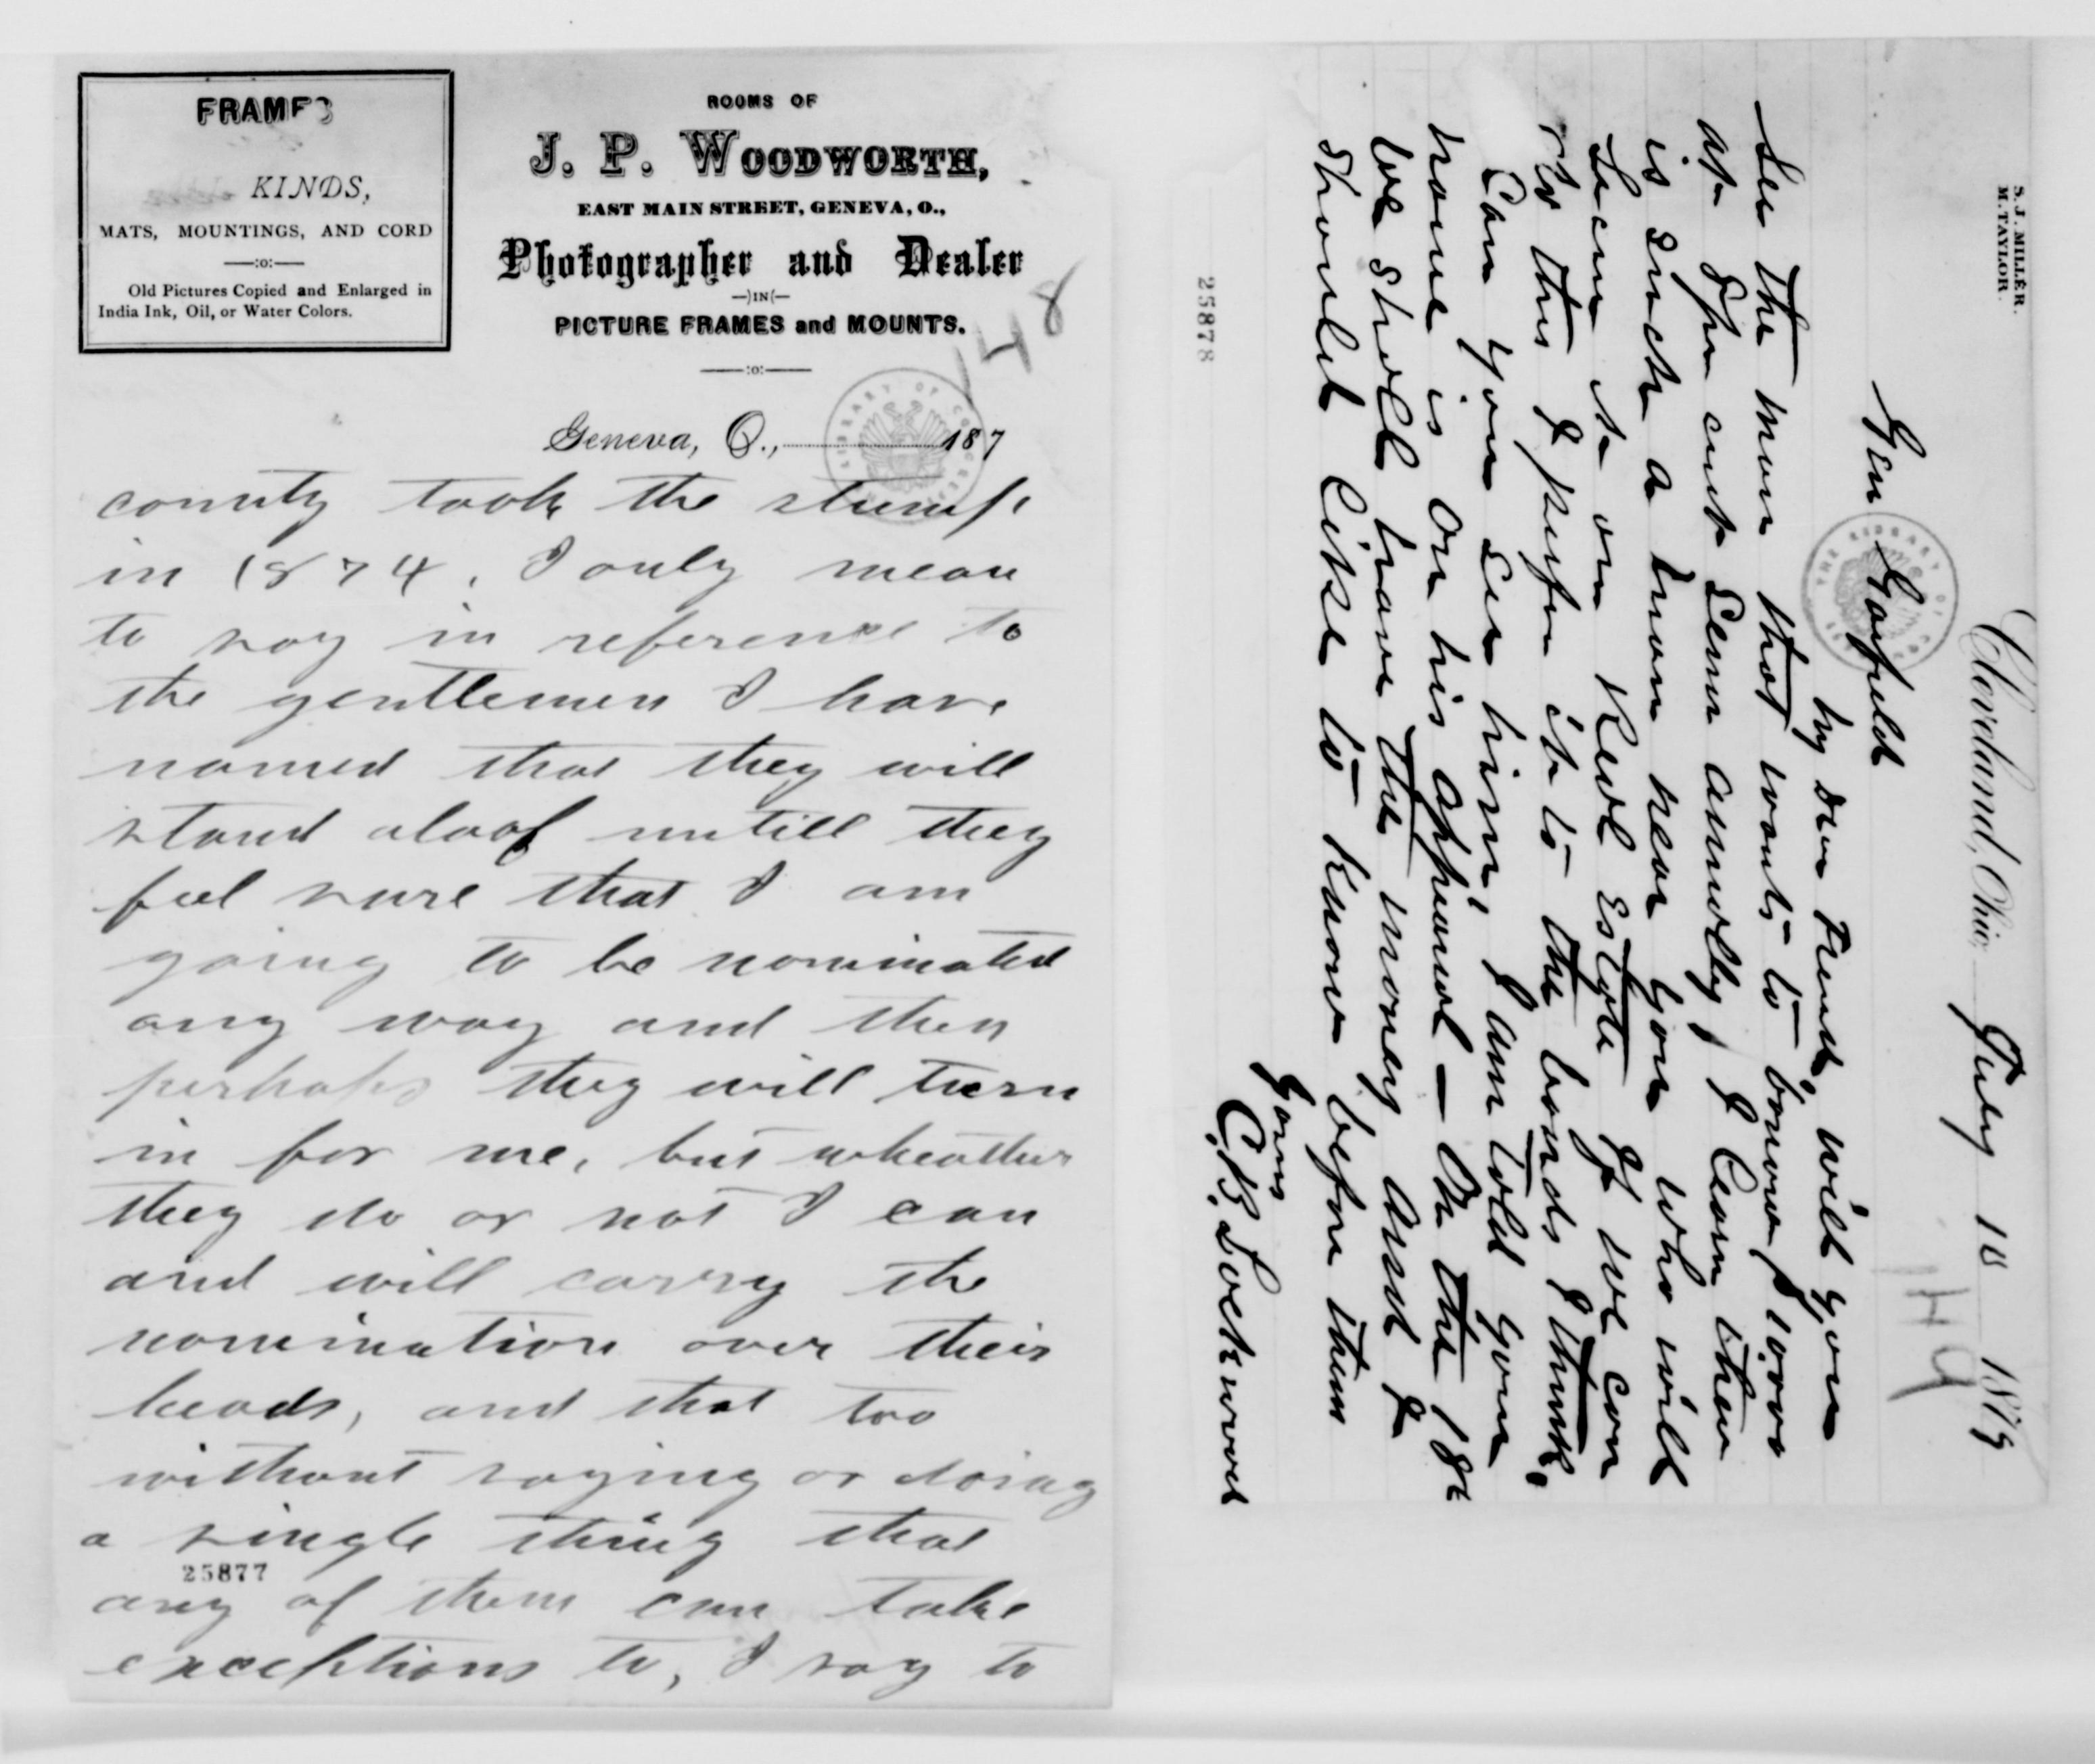 FRAMES
KINDS,
MATS, MOUNTINGS, AND CORD
—:o:—
Old Pictures Copied and Enlarged in
India Ink, Oil, or Water Colors.
ROOMS OF
J. P. WOODWORTH,
EAST MAIN STREET, GENEVA, O.,
Photographer and Dealer
—)IN(—
PICTURE FRAMES and MOUNTS.
—:o:—
148
Geneva, O., 187
county took the stump
in 1874. I only mean
to say in reference to
the gentlemen I have
named that they will
stand aloof untill they
feel sure that I am
going to be nominated
any way and then
perhaps they will turn
in for me, but wheather
they do or not I can
and will carry the
nomination over their
heads, and that too
without saying or doing
a single thing that
25877
any of them can take
exceptions to, I say to
S. J. MILLER.
M. TAYLOR.
Cleveland, Ohio, July 18 1879
149
Gen Garfield
My Dear Friend, will you
see the man that wants to borrow $10,000
at 8 per cent semi anually, I learn there
is such a man near you who will
secure it on Real Estate If we can
do this I prefer it to the bonds I think.
Can you see him, I am told your
name is on his appraisal — On the 18th
we shall have the money and I
should like to know before then
Yours
C. B. Lockwood
25878